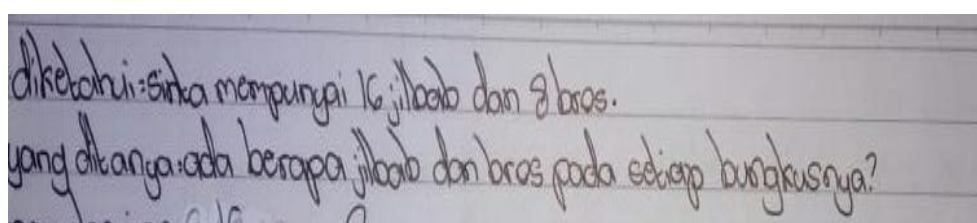 diketahui: sinta mempunyai 16 jilbab dan 8 bros.
yang ditanya: ada berapa jilbab dan bros pada setiap bungkusnya?